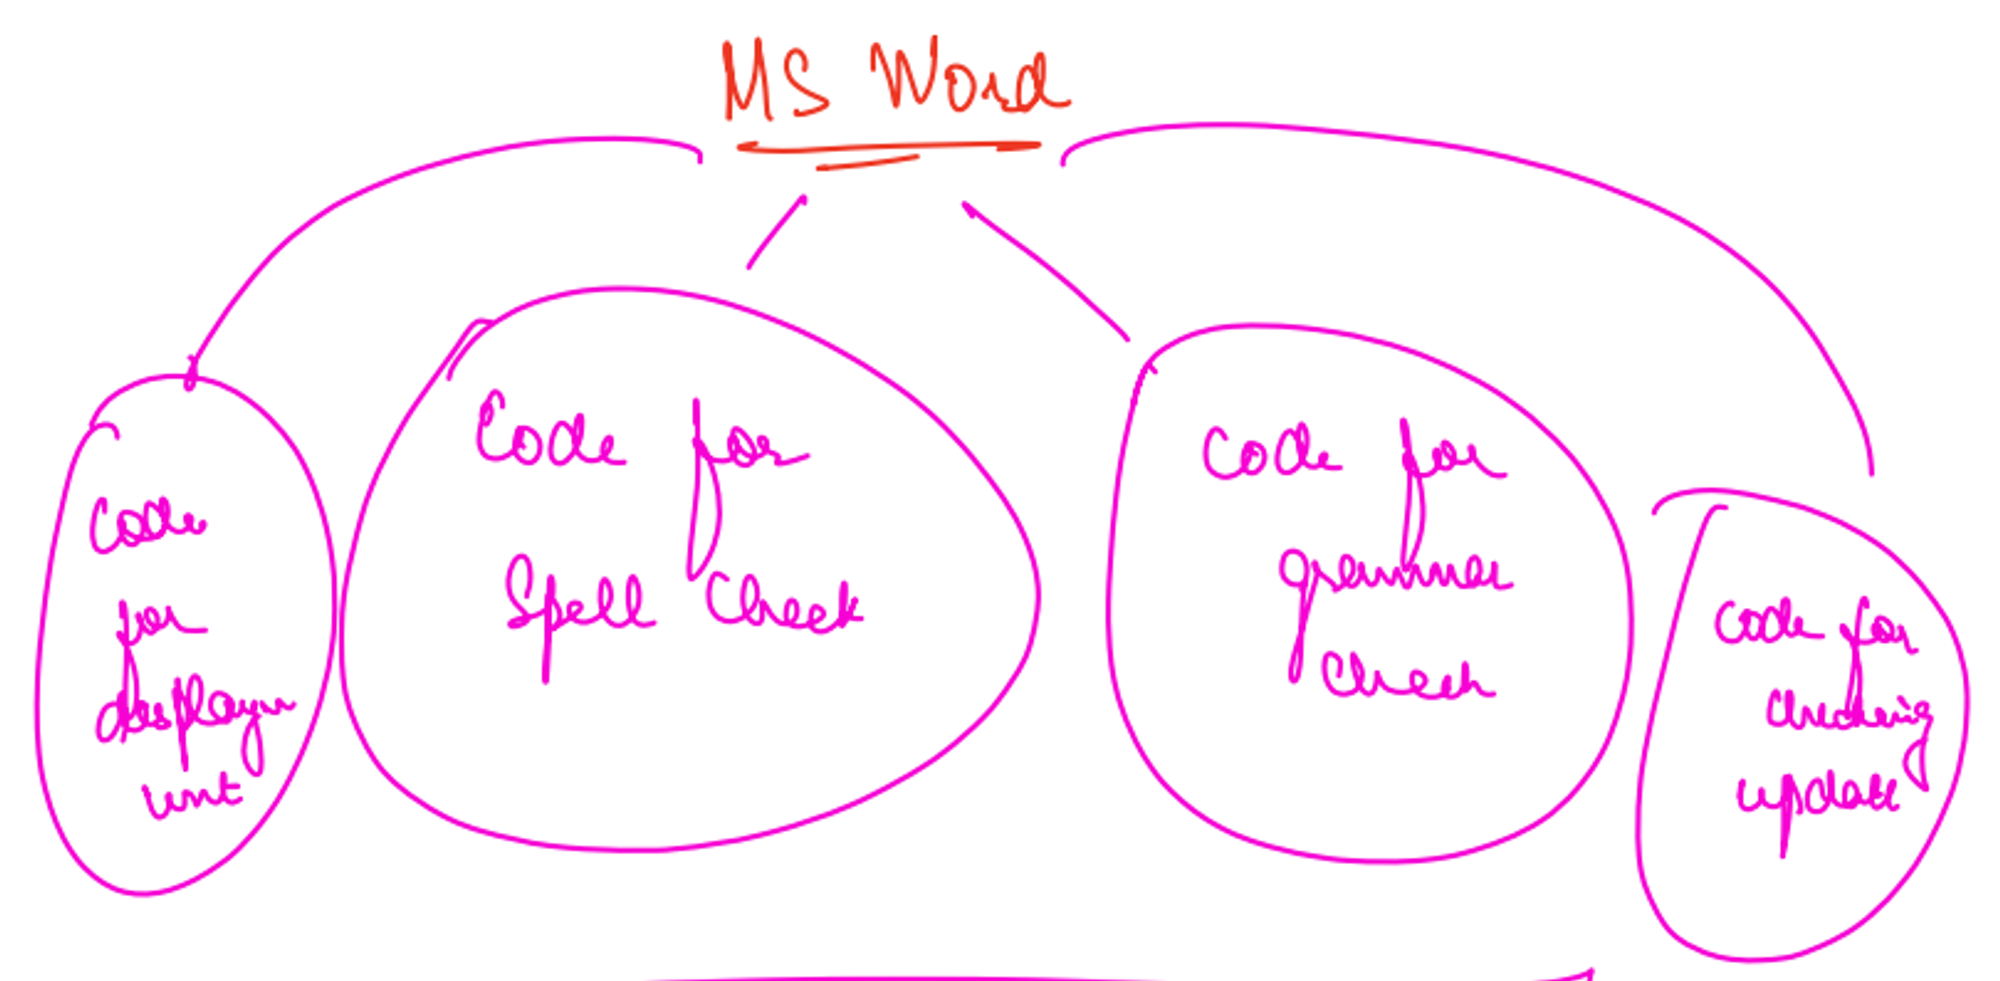 MS Word
Code
for
displayin
unit
Code for
Spell Check
Code for
grammar
Check
Code for
checking
update